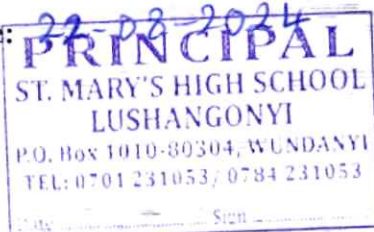 : 22-02-2024
PRINCIPAL
ST. MARY'S HIGH SCHOOL
LUSHANGONYI
P.O. Box 1010-80304, WUNDANYI
TEL: 0701 231053/ 0784 231053
Date Sign